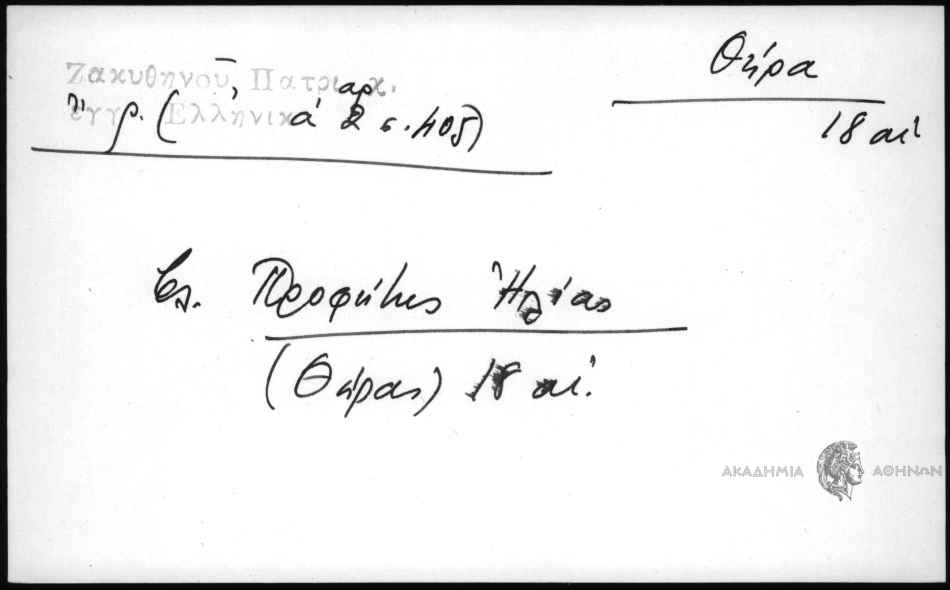 Ζακυθηνοῦ, Πατριαρχ.
ἔγγρ. (Ἑλληνικά 2 σ. 405)
Θήρα
18 αἰ
βλ. Προφήτης Ἠλίας
(Θήρας) 18 αἰ.
ΑΚΑΔΗΜΙΑ ΑΘΗΝΩΝ